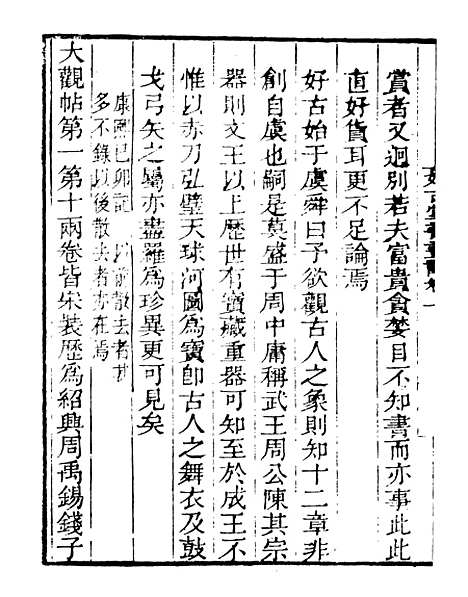 賞者又迥別若夫富貴貪婪目不知書而亦事此此
直好貨耳更不足論焉
好古始于虞舜曰予欲觀古人之象則知十二章非
創自虞也嗣是莫盛于周中庸稱武王周公陳其宗
器則文王以上歷世有寶藏重器可知至於成王不
惟以赤刀弘璧天球河圖爲寶卽古人之舞衣及鼓
戈弓矢之屬亦盡羅爲珍異更可見矣
康熙己卯記　以前散去者甚
多不錄以後散去者亦在焉
大觀帖第一第十兩卷皆宋裝歷爲紹興周禹錫錢子